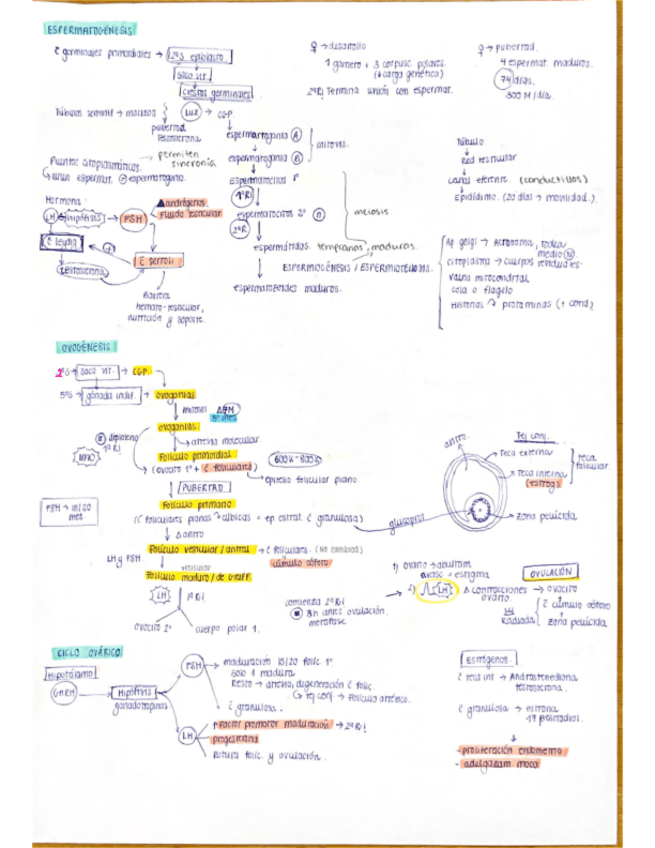 ESPERMATOGÉNESIS
♀ → desarrollo
♀ → pubertad.
C germinales primordiales → 2ªS epiblasto.
1 gameto + 3 corpusc. polares.
4 espermat. maduros.
(↓ carga genética)
74 días.
Saco vit.
300 M/día.
Crestas germinales
2ªRI Termina unión con espermat.
Túbulos seminif → macizos
LUZ → CGP
pubertad
testosterona
espermatogonia A
mitosis.
espermatogonia B
Puentes citoplasmáticos.
permiten sincronía
unen espermat.
espermatogonia.
Espermatocitos 1º
1ªRI
meiosis
Hormona:
LH
Hipófisis
FSH
Andrógenos
Fluido testicular
espermatocitos 2º (n)
2ªRI
espermátidas. tempranas, maduros.
ESPERMIOGÉNESIS / ESPERMIOTELIOSIS.
espermatozoides maduros.
C Leydig
C Sertoli
testosterona
Barrera
hemato-testicular,
nutrición y soporte.
Túbulo
Red testicular
canal eferente. (conductillos)
Epidídimo. (20 días → movilidad.)
Ap golgi → Acrosoma, rodea medio N
citoplasma → cuerpos residuales.
Vaina mitocondrial
cola o flagelo
Histonas → protaminas (↑ cond)
OVOGÉNESIS
2ªS → Saco vit. → CGP.
5ªS → gónada indif. → ovogonias
mitosis
5º mes
ovogonias.
diploteno
1ªRI
atresia molecular
Folículo primordial
600K-800K
(ovocito 1º + C foliculares)
epitelio folicular plano.
PUBERTAD
Folículo primario
(C foliculares planas → cúbicas = ep. estrat. C granulosa)
glucoprot
FSH → 15/20
mes
Δ antro
LH y FSH
Folículo vesicular / antral → C foliculares. (No cambiado)
vesicular
cúmulo oóforo
Folículo maduro / de Graff.
LH
1ªRI
ovocito 2º
cuerpo polar 1.
comienza 2ªRI
3h antes ovulación.
metafase
antro.
Tej conj.
Teca externa
Teca interna
(estróg)
teca
folicular.
zona pelúcida
1) ovario → abultam.
avasc = estigma
OVULACIÓN
2) LH Δ contracciones → ovocito
ovario.
Radiada
C cúmulo oóforo
zona pelúcida.
CICLO OVÁRICO
Hipotálamo
GnRH
Hipófisis
gonadotropinas
FSH
maduración 15/20 folíc. 1º
solo 1 madura
Resto → atresia, degeneración C folic.
tej conj → Folículo atrésico.
C granulosa.
LH
↑ Factor promotor maduración → 2ªRI
progesterona
Rotura folíc. y ovulación.
Estrógenos.
C teca int → Androstenediona
testosterona.
C granulosa → estrona
17 βestradiol.
- proliferación endometrio
- adelgazam moco